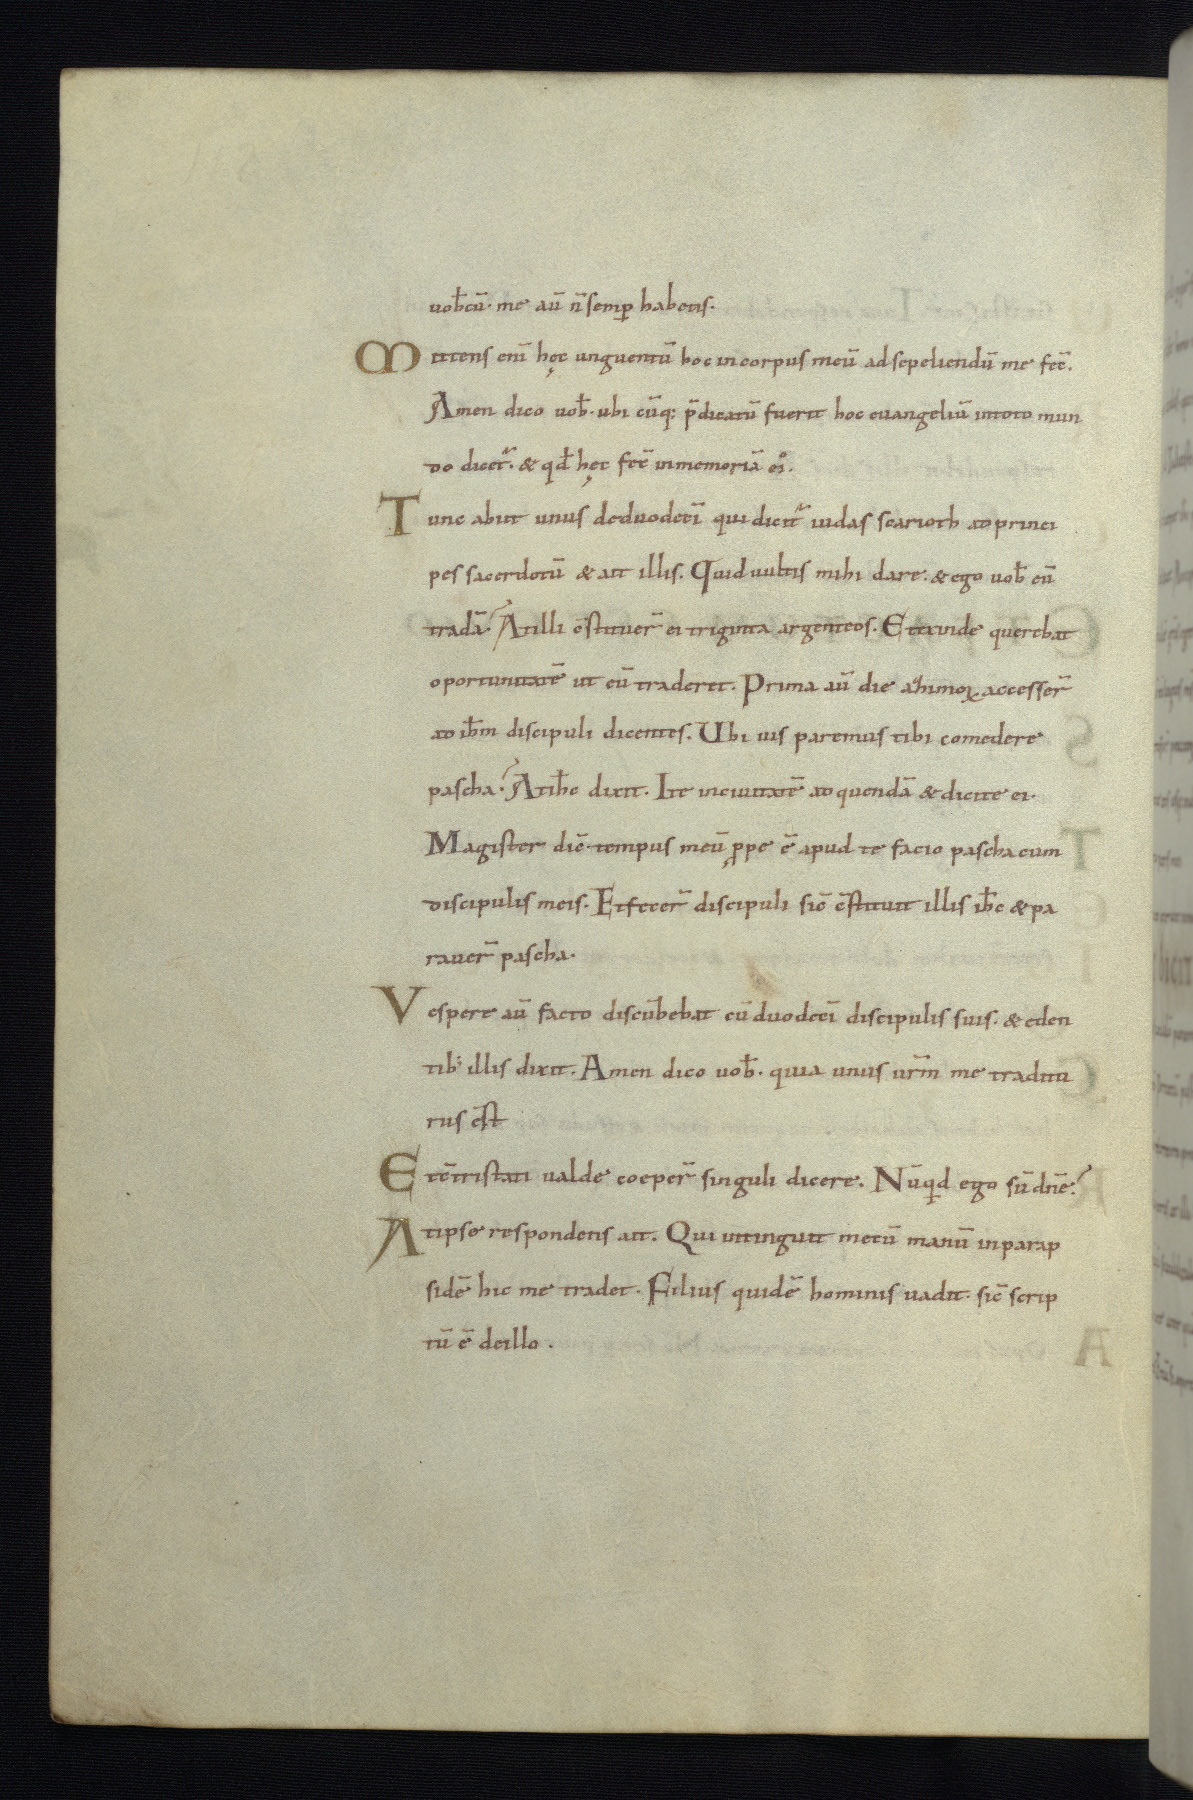 uob̄cū· me aū n̄ semp̄ habetis.
Mittens eni̅ hęc unguentū hoc in corpus meū ad sepeliendū me fec̄.
Amen dico uob̄· ubi cūq; p̄dicatū fuerit hoc euangeliū in toto mun
do dicet᷑· & qd̄ hęc fec̄ in memoriā ei᷒.
Tunc abiit unus de duodeci̅ qui dicit᷑ iudas scarioth ad princi
pes sacerdotū & ait illis. Quid uultis mihi dare· & ego uob̄ eū
tradā? At illi c̄stituer̄ ei triginta argenteos. Et exinde querebat
oportunitatē ut eū traderet. Prima aū die azimoꝝ accesser̄
ad ih̄m discipuli dicentes. Ubi uis paremus tibi comedere
pascha? At ih̄c dixit. Ite in ciuitatē ad quendā & dicite ei·
Magister dic̄· tempus meū ꝓpe ē apud te facio pascha cum
discipulis meis. Et fecer̄ discipuli sic̄ c̄stituit illis ih̄c & pa
rauer̄ pascha·
Vespere aū facto discūbebat cū duodeci̅ discipulis suis· & eden
tib; illis dixit. Amen dico uob̄· quia unus ur̄m me traditu
rus est
Et c̄tristati ualde coeper̄ singuli dicere. Nūqd ego sū dn̄e?
At ipse respondens ait. Qui intinguit mecū manū in parap
sidē hic me tradet· Filius quidē hominis uadit· sic̄ scrip
tū ē de illo.